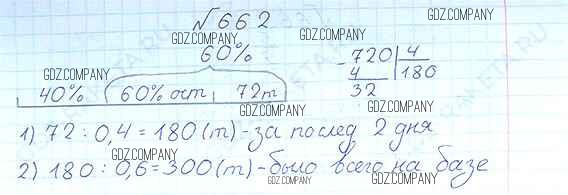 №662
GDZ.COMPANY
GDZ.COMPANY
60%
GDZ.COMPANY
GDZ.COMPANY
GDZ.COMPANY
40% 60% ост 72т
- 720 | 4
4 180
32
GDZ.COMPANY
1) 72 : 0,4 = 180 (т) - за послед 2 дня
GDZ.COMPANY
GDZ.COMPANY
2) 180 : 0,6 = 300 (т) - было всего на базе
GDZ.COMPANY
GDZ.COMPANY